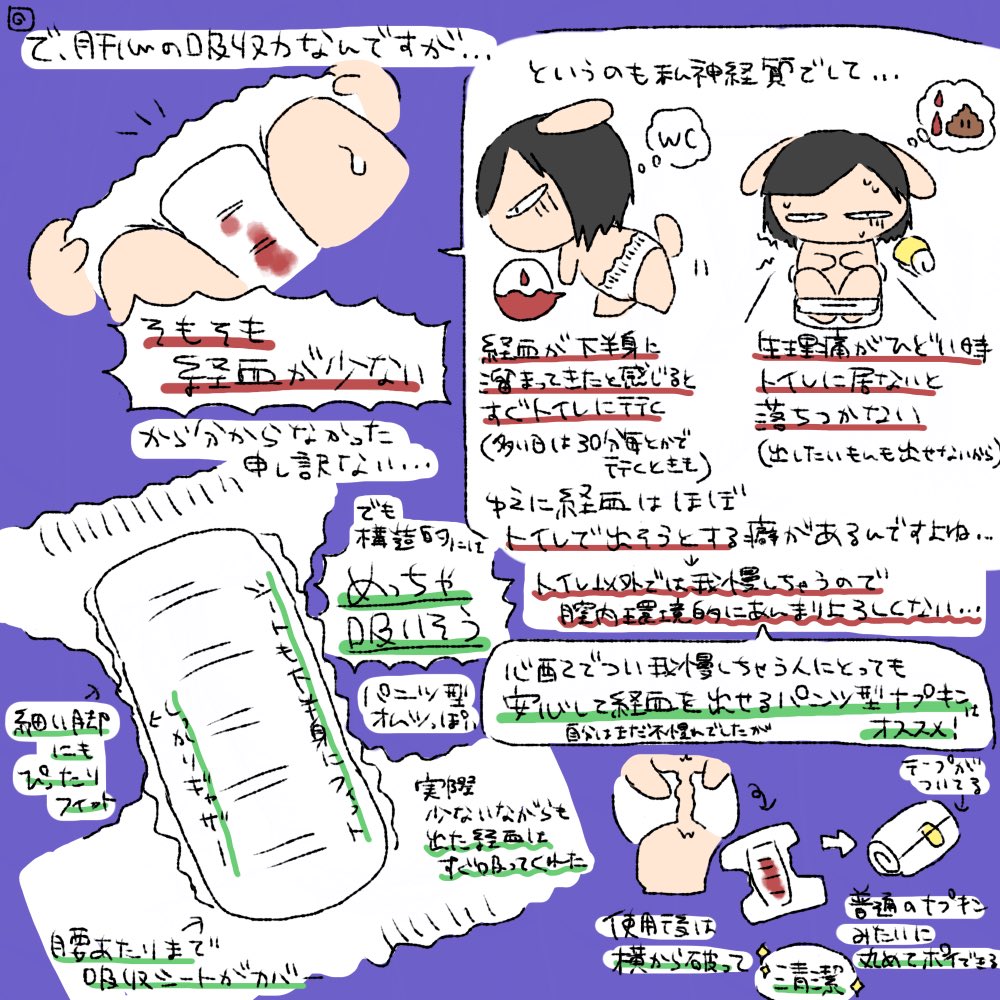 で、肝心の吸収力なんですが...
というのも私神経質でして...
WC
経血が下半身に
溜まってきたと感じると
すぐトイレに行く
(多い日は30分毎とかで
行くときも)
生理痛がひどい時
トイレに居ないと
落ちつかない
(出したいもんも出せないから)
ゆえに経血はほぼ
トイレで出そうとする癖があるんですよね...
トイレ以外では我慢しちゃうので
膣内環境的にあんまりよろしくない...
そもそも
経血が少ない
から分からなかった
申し訳ない...
でも
構造的には
めっちゃ
吸いそう
パンツ型
オムツっぽい
心配でつい我慢しちゃう人にとっても
安心して経血を出せるパンツ型ナプキンは
オススメ!
自分はまだ不慣れでしたが
細い脚
にも
ぴったり
フィット
シートも下半身にフィット
しっかりギャザー
と
実際
少ないながらも
出た経血は
すぐ吸ってくれた
腰あたりまで
吸収シートがカバー
使用後は
横から破って
清潔
テープが
ついてる
普通のナプキン
みたいに
丸めてポイできる